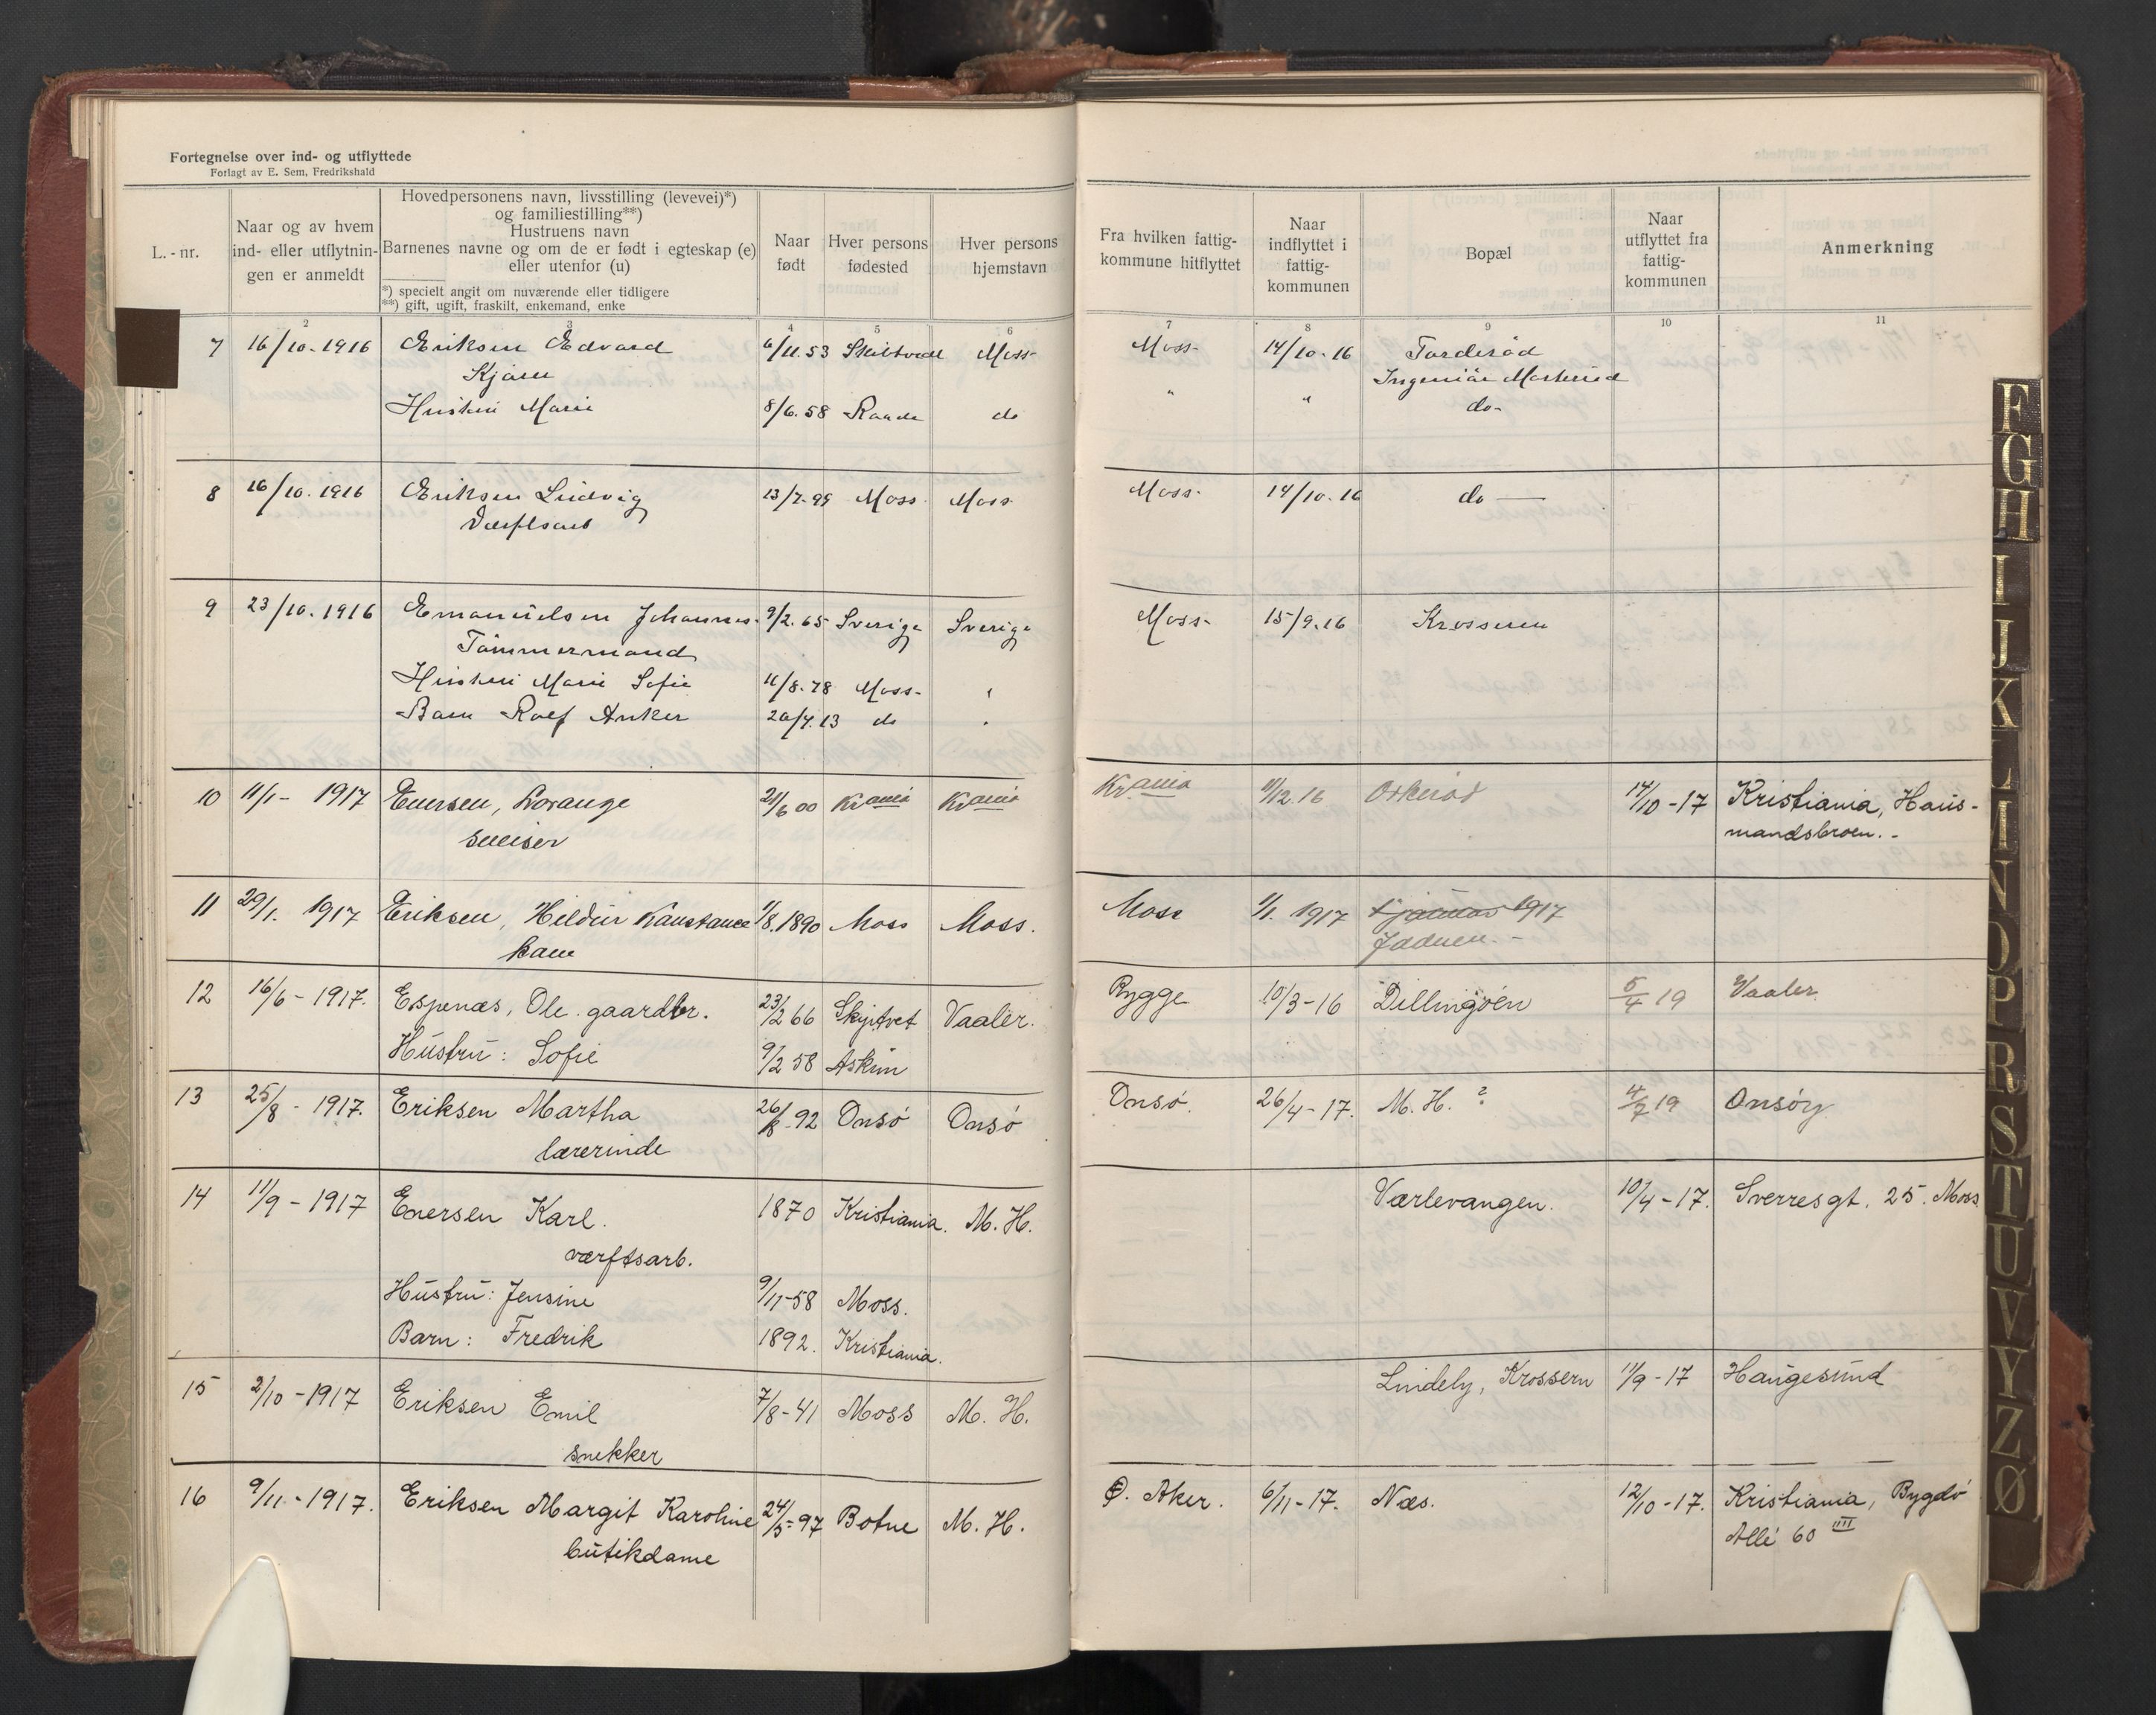 Fortegnelse over ind- og utflyttede
Forlagt av E. Sem, Fredrikshald
L.-nr.
Naar og av hvem ind- eller utflytnin- gen er anmeldt
Hovedpersonens navn, livsstilling (levevei)*)
og familiestilling**)
Hustruens navn
Barnenes navne og om de er født i egteskap (e)
eller utenfor (u)
*) specielt angit om nuværende eller tidligere
**) gift, ugift, fraskilt, enkemand, enke
Naar født
Hver persons fødested
Hver persons hjemstavn
Fra hvilken fattig- kommune hitflyttet
Naar indflyttet i fattig- kommunen
Bopæl
Naar utflyttet fra fattig- kommunen
Anmerkning
2 3 4 5 6 7 8 9 10 11
7 16/10-1916 Eriksen Edvard 6/11.53 Moss- Moss- 14/10-16 Torderöd
Ingeniör
Hustru Marie 8/6.58 Raade do " " do-
8 16/10.1916 Eriksen Ludvig 13/7.99 Moss Moss Moss- 14/10-16 do —
9 23/10.1916 Emanuelsen Johannes 9/2.65 Sverige Sverige Moss- 15/9.16 Krosseren
Tömmermand
Hustru Marie Sofie 11/8.78 Moss- "
Barn Rolf Anker 20/7.13 do "
10 11/1- 1917 Enersen, Lorange 21/6 00 Krania Krania Krania 11/12.16 Orkeröd 14/10-17 Kristiania, Haus-
sveiser mandsbroen.-
11 29/1. 1917 Eriksen, Hildur Konstance 1/8.1890 Moss Moss. Moss 1/1. 1917 1 januar 1917
Jaduen.-
12 16/6-1917. Espenæs, Ole. gaardbr. 23/2 66 Skiptvet Vaaler. Rygge 10/3-16 Dillingöen 5/4 19 Vaaler.
Hustru: Sofie 9/2 58 Askim
13 25/8-1917. Eriksen Martha 26/8-92 Onsö Onsö Onsö. 26/4-17. M. H. ? 4/7 19 Onsöy
lærerinde
14 11/9-1917 Enersen Karl. 1870 Kristiania. M. H. Værlevangen. 10/4-17. Sverresgt. 25. Moss.
værftsarb.
Hustru: Jensine 9/11-58 Moss.
Barn: Fredrik 1892. Kristiania.
15 2/10-1917 Eriksen Emil 7/8-41 Moss M. H. Lindely, Krossern 11/9-17 Haugesund
snekker
16 9/11-1917. Eriksen Margit Karoline 24/5-97 Botne M. H. Ø. Aker. 6/11-17. Næs. 12/10-17. Kristiania, Bygdö
butikdame Allé 60 III
F
G
H
I
J
K
L
M
N
O
P
R
S
T
U
V
Y
Z
Ø